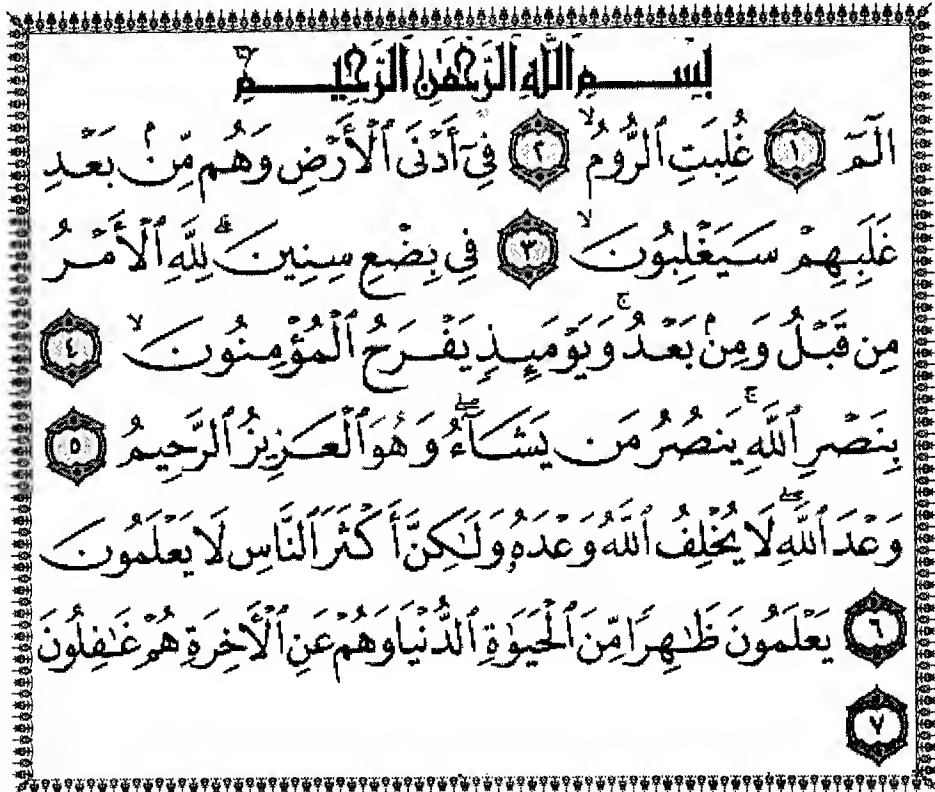 بِسْمِ ٱللَّهِ ٱلرَّحْمَٰنِ ٱلرَّحِيمِ
الٓمٓ ١ غُلِبَتِ ٱلرُّومُ ٢ فِىٓ أَدْنَى ٱلْأَرْضِ وَهُم مِّنۢ بَعْدِ
غَلَبِهِمْ سَيَغْلِبُونَ ٣ فِى بِضْعِ سِنِينَ ۗ لِلَّهِ ٱلْأَمْرُ
مِن قَبْلُ وَمِنۢ بَعْدُ ۚ وَيَوْمَئِذٍ يَفْرَحُ ٱلْمُؤْمِنُونَ ٤
بِنَصْرِ ٱللَّهِ ۚ يَنصُرُ مَن يَشَآءُ ۖ وَهُوَ ٱلْعَزِيزُ ٱلرَّحِيمُ ٥
وَعْدَ ٱللَّهِ ۖ لَا يُخْلِفُ ٱللَّهُ وَعْدَهُۥ وَلَٰكِنَّ أَكْثَرَ ٱلنَّاسِ لَا يَعْلَمُونَ
٦ يَعْلَمُونَ ظَٰهِرًا مِّنَ ٱلْحَيَوٰةِ ٱلدُّنْيَا وَهُمْ عَنِ ٱلْءَاخِرَةِ هُمْ غَٰفِلُونَ
٧